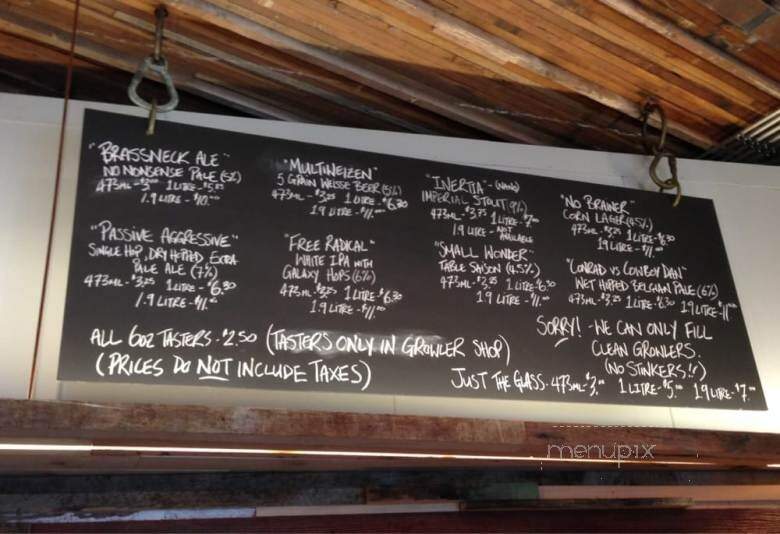 "BRASSNECK ALE"
NO NONSENSE PALE (5%)
473ML - $3.00 1 LITRE - $5.25
1.9 LITRE - $10.00
"PASSIVE AGGRESSIVE"
SINGLE HOP, DRY HOPPED EXTRA
PALE ALE (7%)
473ML - $3.25 1 LITRE - $6.30
1.9 LITRE - $11.00
"MULTIWEIZEN"
5 GRAIN WEISSE BEER (5%)
473ML - $3.25 1 LITRE - $6.30
1.9 LITRE - $11.00
"FREE RADICAL"
WHITE IPA WITH
GALAXY HOPS (6%)
473ML - $3.25 1 LITRE - $6.30
1.9 LITRE - $11.00
"INERTIA" - (NANO)
IMPERIAL STOUT (9%)
473ML - $3.75 1 LITRE - $7.
1.9 LITRE - NOT AVAILABLE
"SMALL WONDER"
TABLE SAISON (4.5%)
473ML - $3.25 1 LITRE - $6.30
1.9 LITRE - $11.00
"NO BRAINER"
CORN LAGER (4.5%)
473ML - $3.25 1 LITRE - $6.30
1.9 LITRE - $11.00
"CONRAD VS COWBOY DAN"
WET HOPPED BELGIAN PALE (6%)
473ML - $3.25 1 LITRE - $6.30 1.9 LITRE - $11.00
ALL 6OZ TASTERS - $2.50 (TASTERS ONLY IN GROWLER SHOP)
(PRICES DO NOT INCLUDE TAXES)
SORRY! - WE CAN ONLY FILL
CLEAN GROWLERS.
(NO STINKERS!!)
JUST THE GLASS - 473ML - $3.00 1 LITRE - $5.00 1.9 LITRE - $7.00
menupix